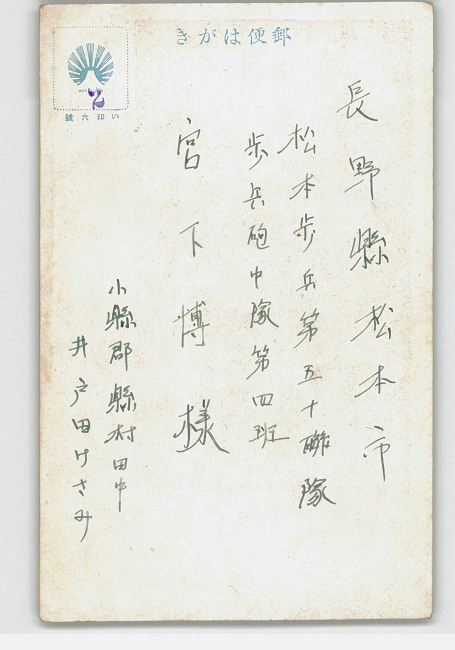 きがは便郵
い印六號
長野縣松本市
松本歩兵第五十聯隊
歩兵砲中隊第四班
宮下博様
小縣郡縣村田中
井戸田けさみ